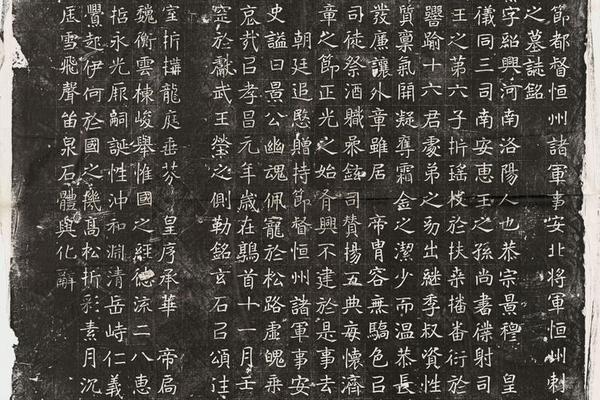 節都督恒州諸軍事安北將軍恒州刺
之墓誌銘
字紹興河南洛陽人也恭宗景穆 皇
儀同三司南安惠王之孫尚書僕射司
王之第六子折瑤枝於扶桒播蕃衍於
譽踰十六君豪弟之㓜出繼季叔資性
質稟氣閑凝夸霜金之潔少而溫恭長
發廉讓外章雖居 帝胄容無驕色召
司徒祭酒職彔銓司贊揚五典每懷濟
章之節正光之始脊興不建於是事去
朝廷追愍贈持節督恒州諸軍事安
史謚曰景公幽魂佩寵於松路虛魄乘
哀哉召孝昌元年歲在鶉首十一月壬
窆於獻武王塋之側勒銘玄石召頌注
室折龍庭垂芬 皇序承華 帝局
魏衡雲棟峻舉惟國之経德流二八惠
永光厥嗣誕性沖和淵清岳峙仁義
釁起伊何於國之機高松折彩素月沉
雪飛聲笛泉石體與化辭